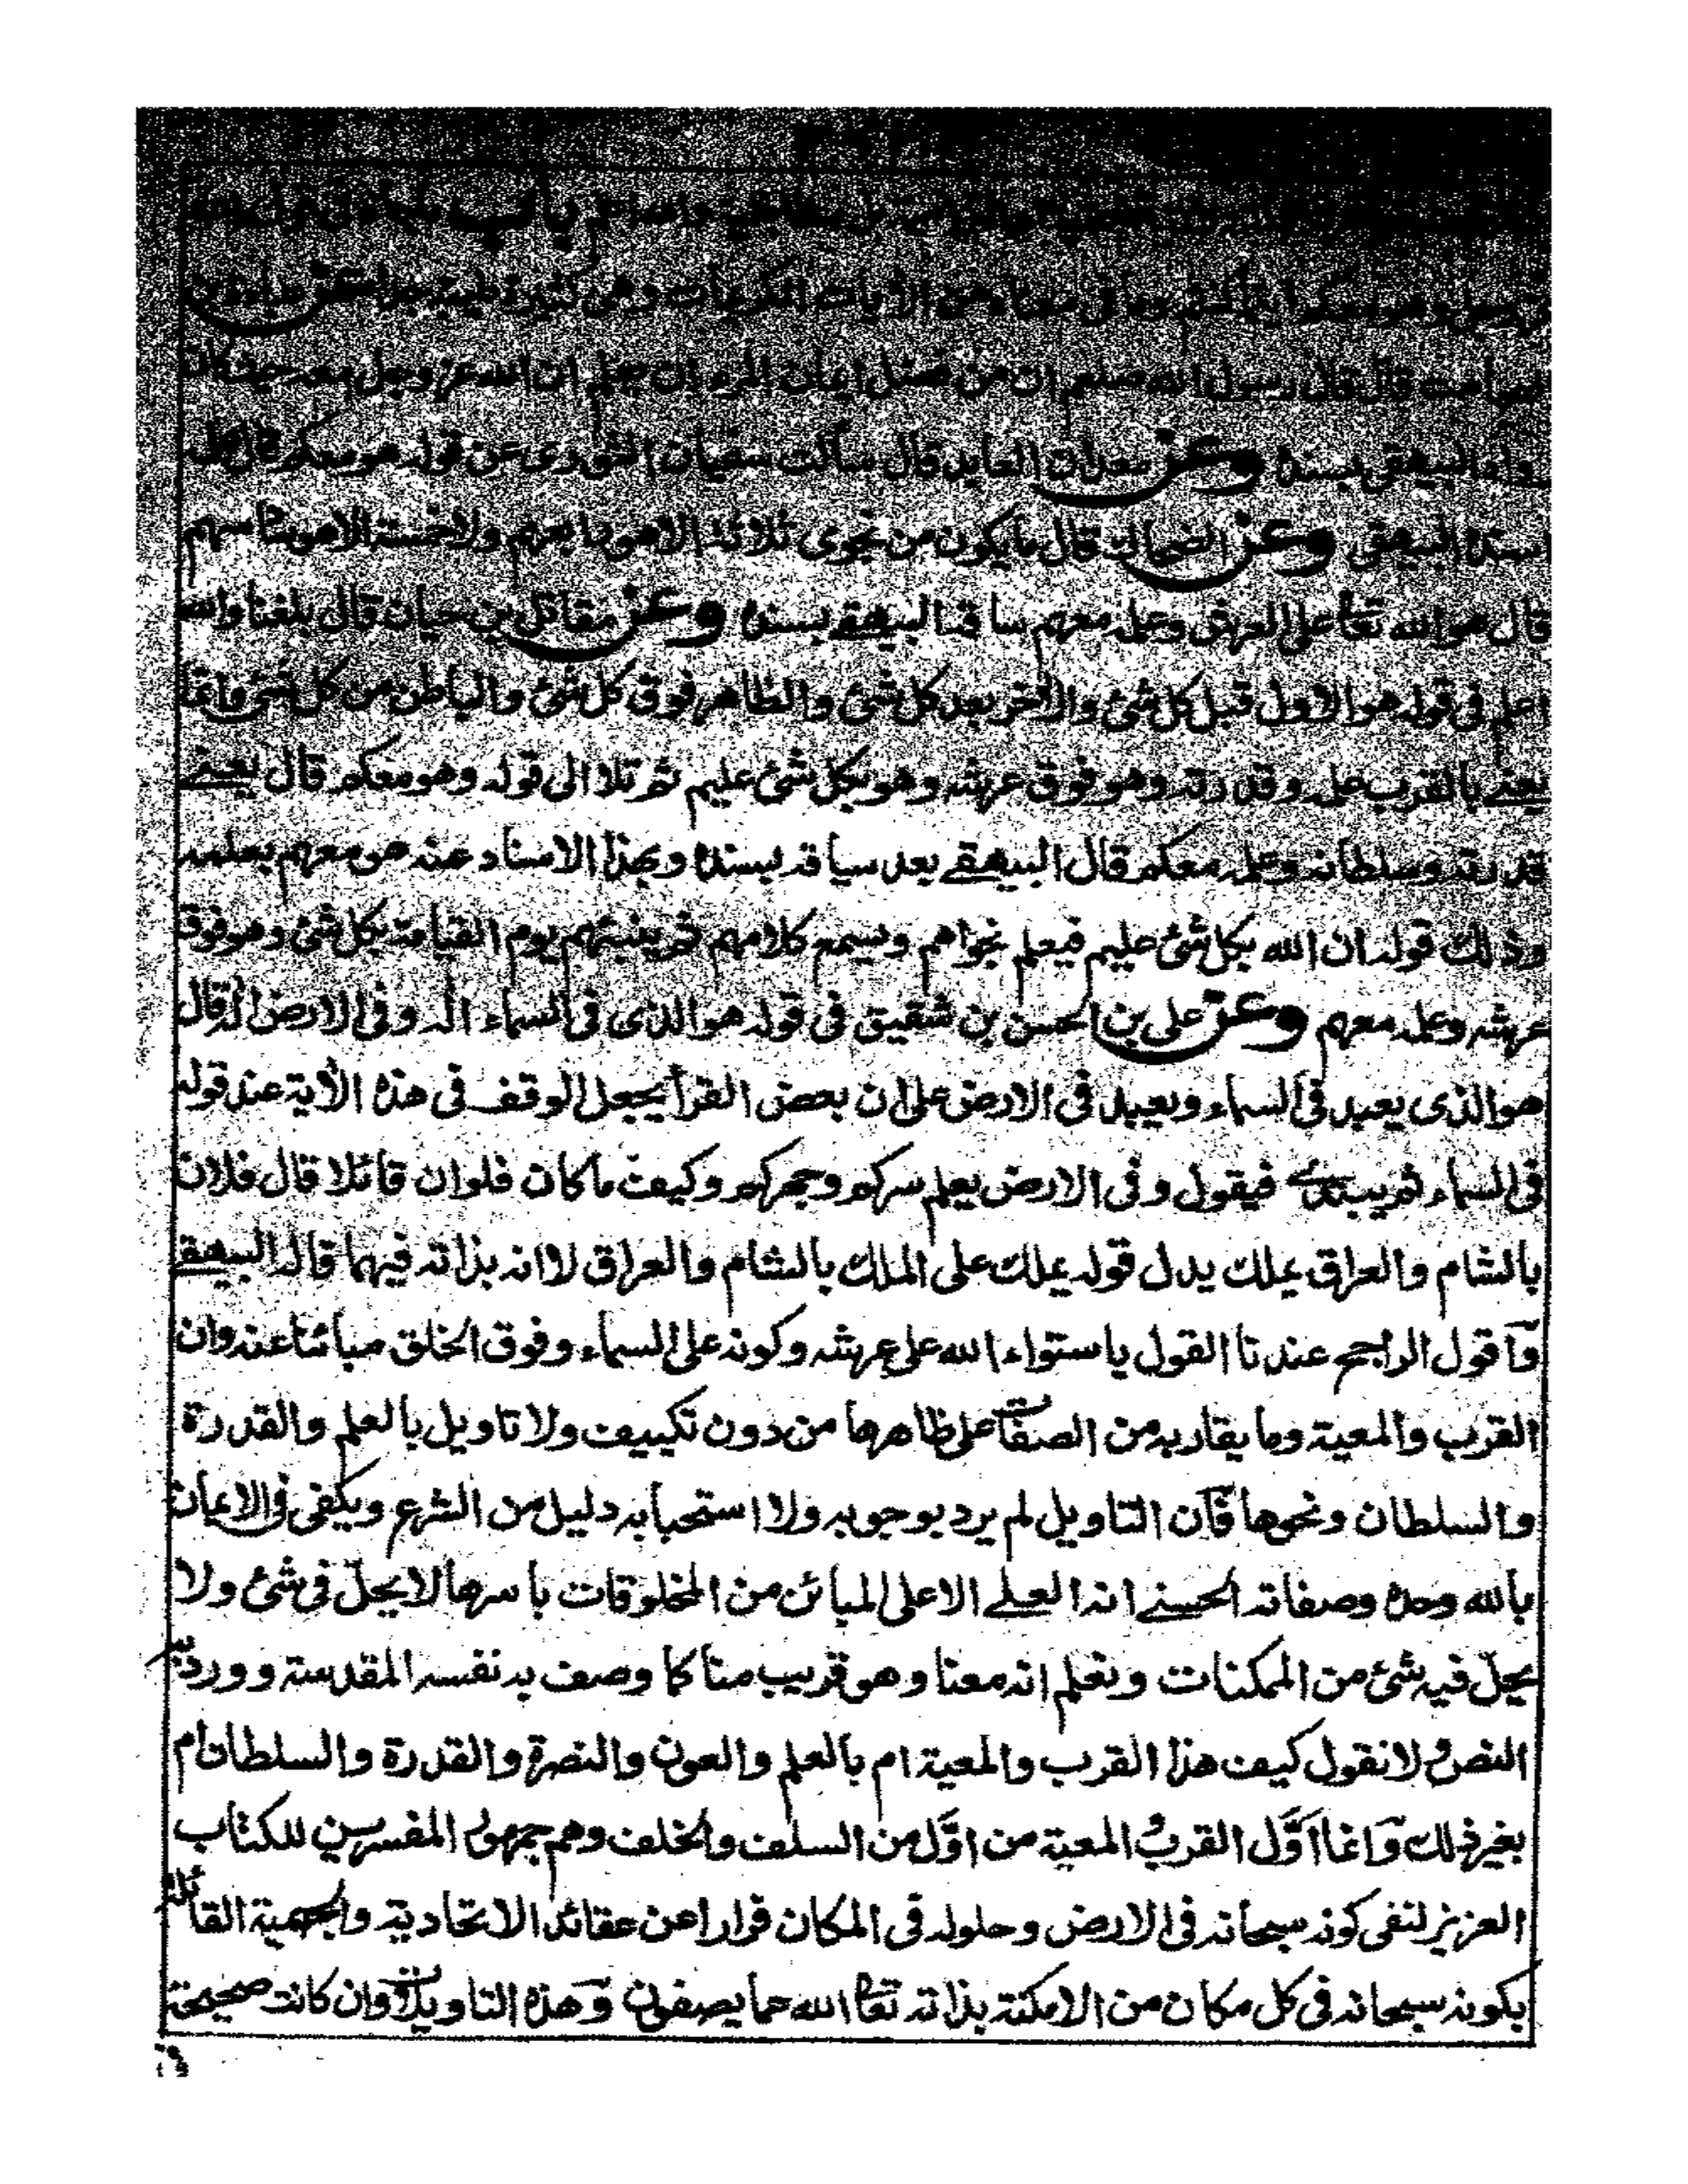 باب
وهو معكم اينما كنتم وما في معناه من الآيات الكريمات وهي كثيرة طيبة جدا عن عبادة بن
الصامت قال قال رسول الله صلعم ان من فضل ايمان المرء ان يعلم ان الله عز وجل معه حيث كان
رواه البيهقي بسنده وعن معدان العابد قال سألت سفيان الثوري عن قوله هو معكم قال علمه
اسنده البيهقي وعن الضحاك قال ما يكون من نجوى ثلاثة الا هو رابعهم ولا خمسة الا هو سادسهم
قال هو الله تعا على العرش وعلمه معهم ساقه البيهقي بسنده وعن مقاتل بن حيان قال بلغنا والله
اعلم في قوله هو الاول قبل كل شئ والآخر بعد كل شئ والظاهر فوق كل شئ والباطن من كل شئ وانما
يعني بالقرب علمه وقدرته وهو فوق عرشه وهو بكل شئ عليم ثم تلا الى قوله وهو معكم قال يعني
قدرته وسلطانه وعلمه معكم قال البيهقي بعد سياقه بسنده وبهذا الاسناد عنه هو معهم بعلمه
وذلك قوله ان الله بكل شئ عليم فيعلم نجواهم ويسمع كلامهم ثم ينبئهم يوم القيامة بكل شئ وهو فوق
عرشه وعلمه معهم وعن علي بن الحسن بن شقيق في قوله هو الذى فى السماء اله وفى الارض اله قال
هو الذى يعبد فى السماء ويعبد فى الارض على ان بعض القرأ يجعل الوقف فى هذه الآية عند قوله
فى السماء ثم يبتدئ فيقول وفى الارض يعلم سركم وجهركم وكيف ما كان فلو ان قائلا قال فلان
بالشام والعراق يملك يدل قوله يملك على الملك بالشام والعراق لا انه بذاته فيهما قاله البيهقي
وآقول الراجح عندنا القول باستواء الله على عرشه وكونه على السماء وفوق الخلق مبائنا عنه وان
القرب والمعية وما يقاربه من الصفات على ظاهرها من دون تكييف ولا تاويل بالعلم والقدرة
والسلطان ونحوها فآن التاويل لم يرد بوجوبه ولا استحبابه دليل من الشرع ويكفى فى الايمان
بالله وحده وصفاته الحسنى انه العلى الاعلى المبائن من المخلوقات باسرها لا يحل فى شئ ولا
يحل فيه شئ من الممكنات ونعلم انه معنا وهو قريب منا كما وصف به نفسه المقدسة وورد به
النص ولا نقول كيف هذا القرب والمعية ام بالعلم والعون والنصرة والقدرة والسلطان ام
بغير ذلك وآنما اوّل القرب والمعية من اوّل من السلف والخلف وهم جمهور المفسرين للكتاب
العزيز لنفى كونه سبحانه فى الارض وحلوله فى المكان فرارا عن عقائد الاتحادية والجهمية القائلة
بكونه سبحانه فى كل مكان من الامكنة بذاته تعا الله عما يصفون وهذه التاويلات وان كانت صحيحة